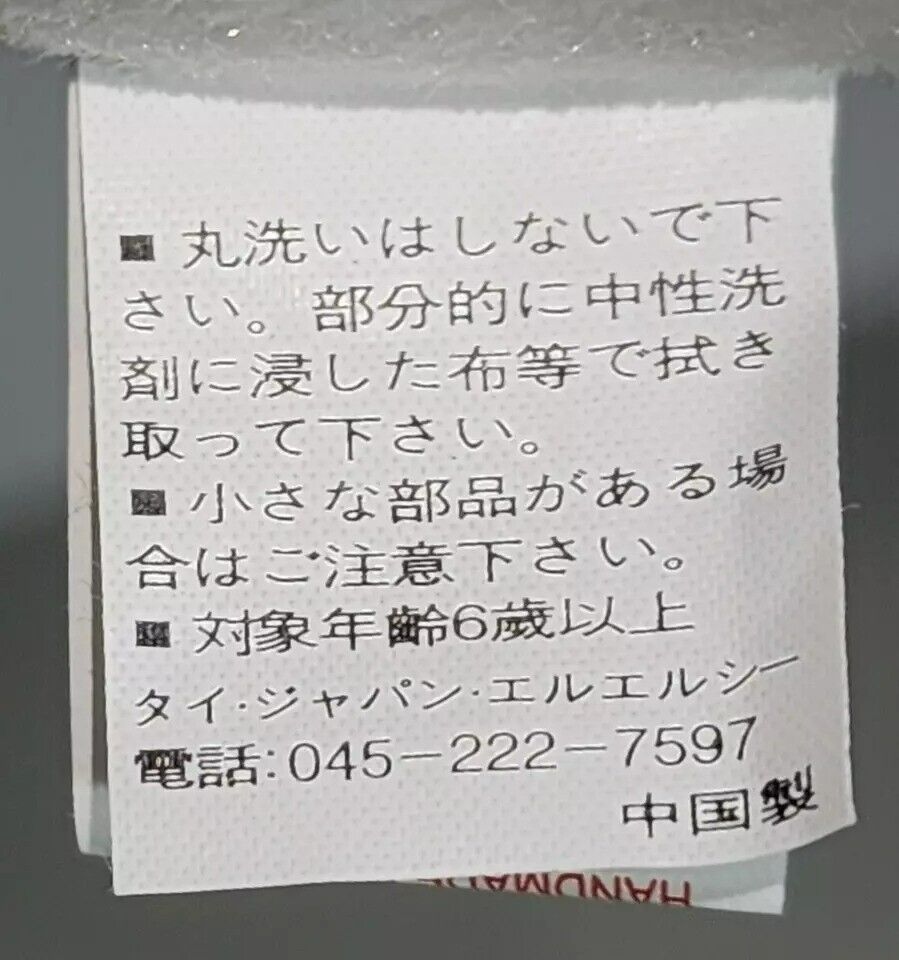 ■ 丸洗いはしないで下
さい。部分的に中性洗
剤に浸した布等で拭き
取って下さい。
■ 小さな部品がある場
合はご注意下さい。
■ 対象年齢6歳以上
タイ・ジャパン・エルエルシー
電話:045-222-7597
中国製
HANDMADE